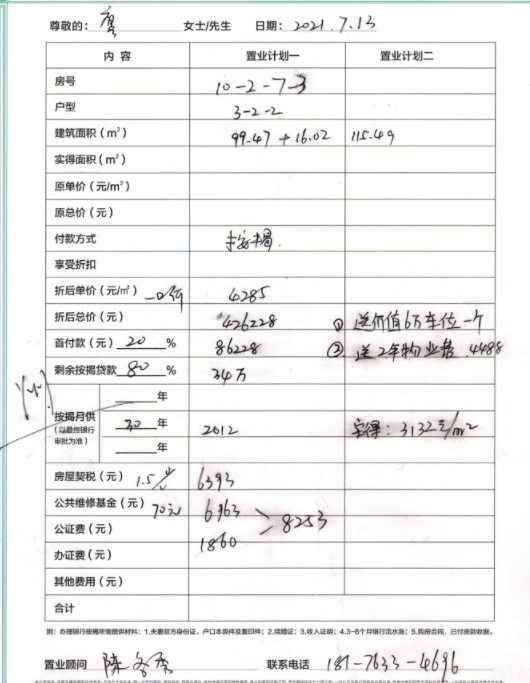 尊敬的：廖 女士/先生 日期：2021.7.13
内 容 置业计划一 置业计划二
房号 10-2-7-3
户型 3-2-2
建筑面积（m²） 99.47 +16.02 115.49
实得面积（m²）
原单价（元/m²）
原总价（元）
付款方式 按揭
享受折扣
折后单价（元/㎡）一口价 4285
折后总价（元） 426228 ① 送价值6万车位一个
首付款（元）20 % 86228 ② 送2年物业费 4488
剩余按揭贷款 80 % 34万
年
按揭月供 30 年 2012 实得：3132元/m²
（以最终银行
审批为准） 年
房屋契税（元）1.5% 6393
公共维修基金（元）70元 6963 8253
公证费（元）
办证费（元） 1860
其他费用（元）
合计
附：办理银行按揭所需提供材料：1.夫妻双方身份证、户口本原件及复印件；2.结婚证；3.收入证明；4.3-6个月银行流水账；5.购房合同、已付房款收据。
置业顾问 陈 联系电话 181-7633-4696